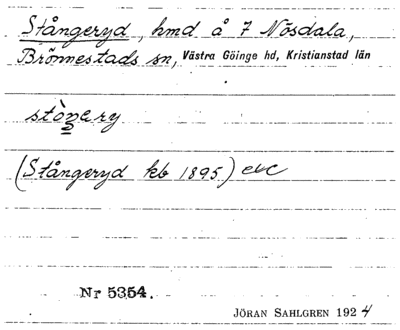 Stångeryd, hmd å 7 Nösdala,
Brönnestads sn, Västra Göinge hd, Kristianstad län
(Stångeryd kb 1895) evc
Nr 5354.
JÖRAN SAHLGREN 1924